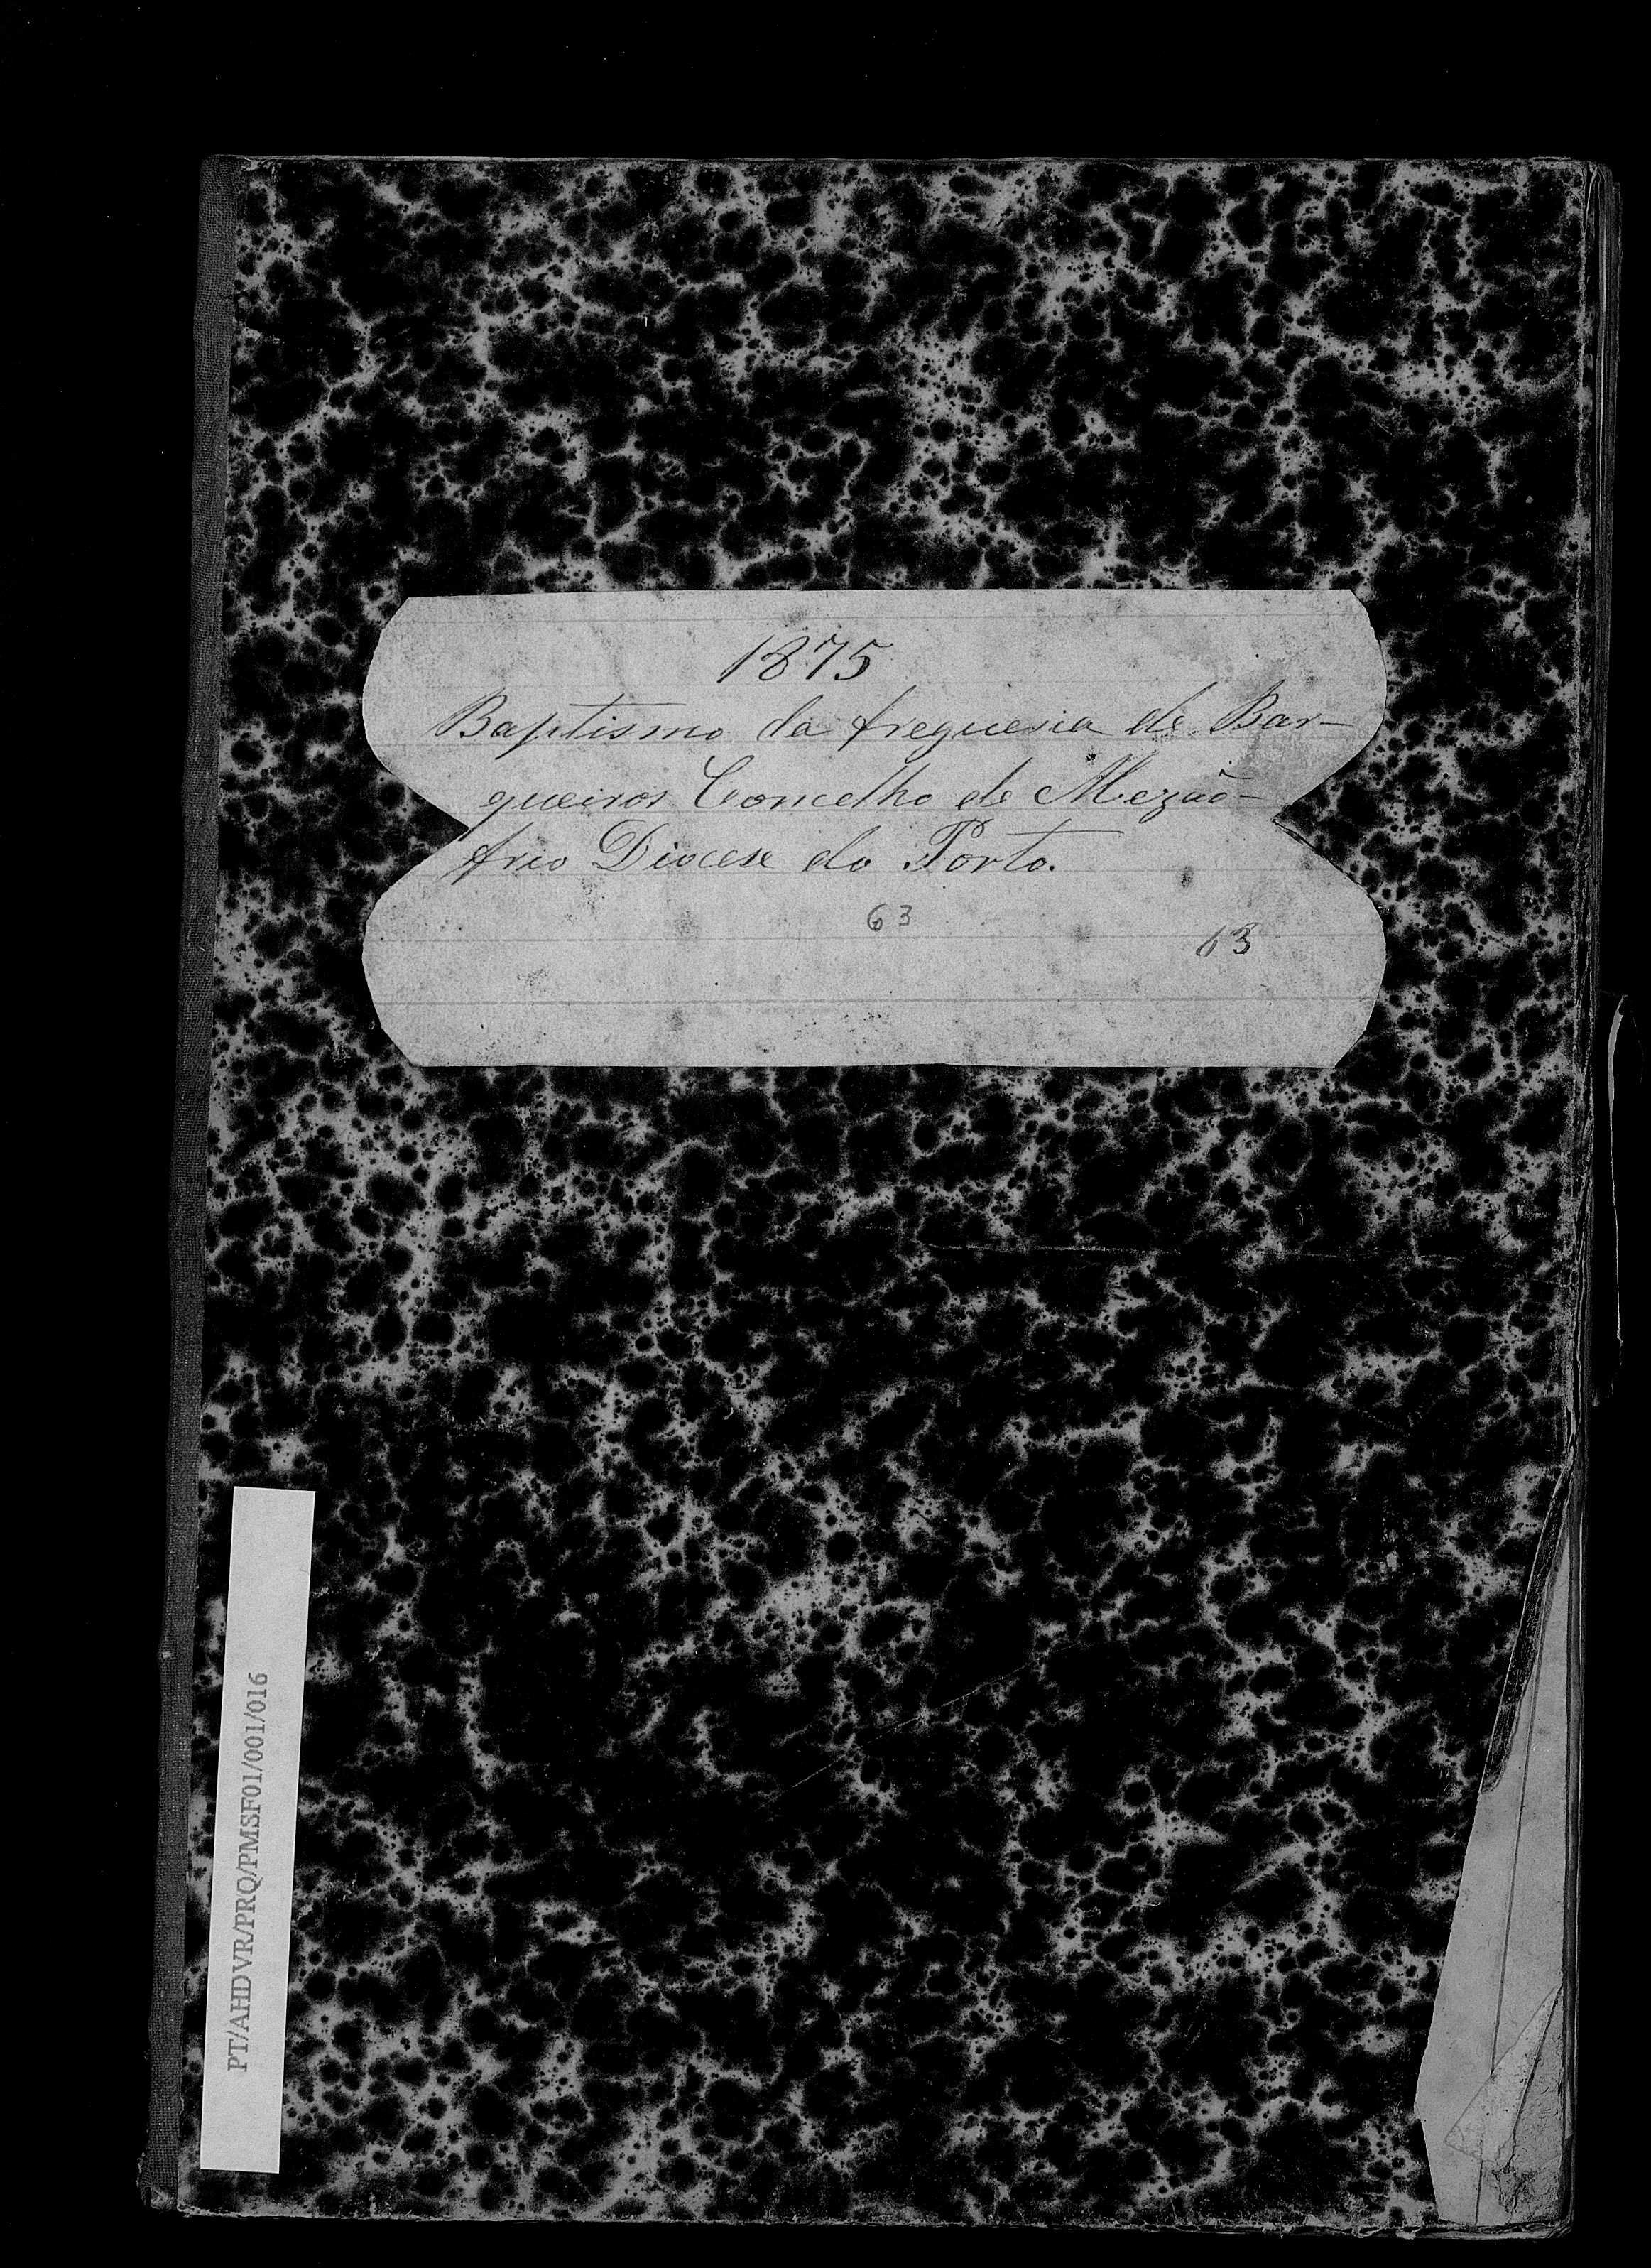 1875
Baptismo da freguesia de Bar-
queiros Concelho de Mezão-
frio Diocese do Porto.
63
63
PT/AHDVR/PRQ/PMSF01/001/016